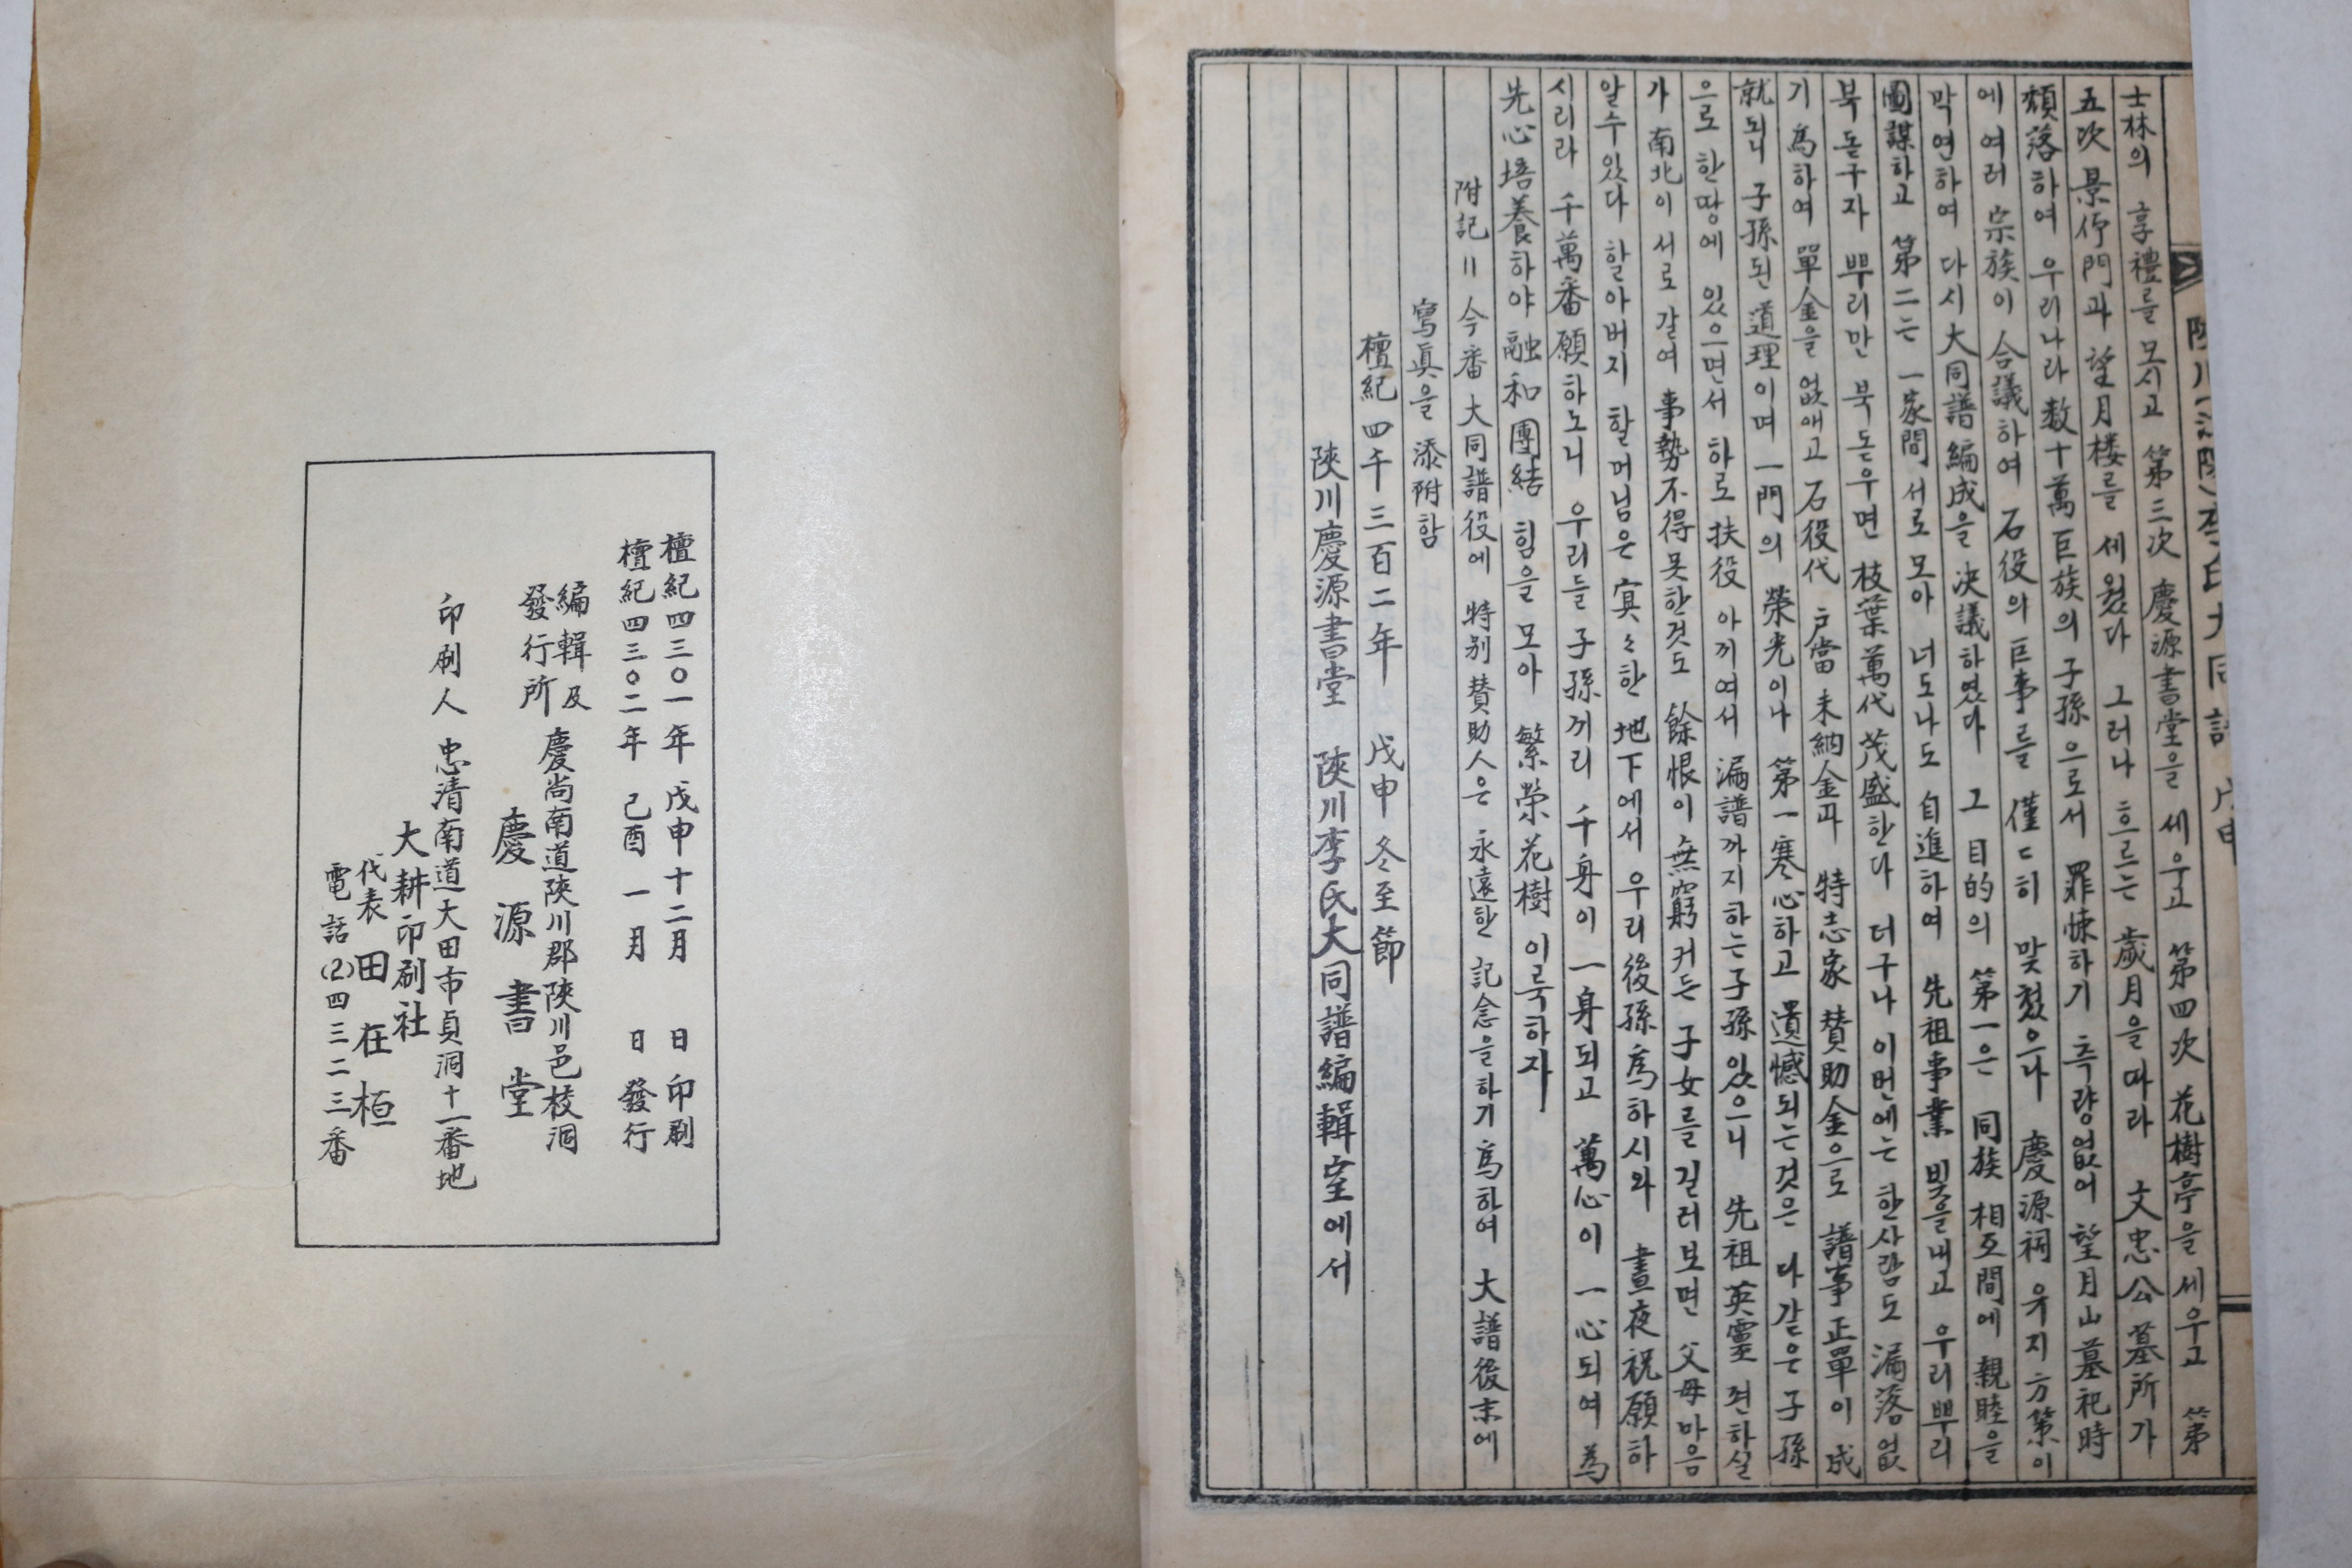 陜川(江陽)李氏大同譜 戊申
士林의 享禮를 모시고 第三次 慶源書堂을 세우고 第四次 花樹亭을 세우고 第
五次 景仰門과 望月楼를 세웠다 그러나 흐르는 歲月을 따라 文忠公 墓所가
頹落하여 우리나라 数十萬 巨族의 子孫으로서 罪悚하기 측량없어 望月山 墓祀時
에 여러 宗族이 合議하여 石役의 巨事를 僅〻히 맞췄으나 慶源祠 유지方策이
막연하여 다시 大同譜 編成을 决議하였다 그 目的의 第一은 同族 相互間에 親睦을
圖謀하고 第二는 一家間 서로 모아 너도나도 自進하여 先祖事業 빛을내고 우리뿌리
북돋구자 뿌리만 북돋우면 枝葉萬代 茂盛한다 더구나 이번에는 한사람도 漏落없
기 爲하여 單金을 없애고 石役代 戶當 未納金과 特志家 賛助金으로 譜事正單이 成
就되니 子孫된 道理이며 一門의 榮光이나 第一寒心하고 遺憾되는것은 다같은 子孫
으로 한땅에 있으면서 하로 扶役 아끼여서 漏譜까지하는 子孫 있으니 先祖英靈 젼하실
가 南北이 서로갈여 事勢不得못한것도 餘恨이 無窮커든 子女를 길러보면 父母마음
알수있다 할아버지 할머님은 冥〻한 地下에서 우리後孫 爲하시와 晝夜祝願하
시리라 千萬番 願하노니 우리들 子孫끼리 千身이 一身되고 萬心이 一心되여 為
先心 培養하야 融和團結 힘을모아 繁榮花樹 이룩하자
附記=今番 大同譜役에 特別賛助人은 永遠한 記念을하기 爲하여 大譜後末에
寫眞을 添附함
檀紀四千三百二年 戊申 冬至節
陜川慶源書堂 陜川李氏大同譜編輯室에서
檀紀四三○一年 戊申十二月 日 印刷
檀紀四三○二年 己酉 一月 日 發行
編輯及
發行所
慶尙南道陜川郡陜川邑校洞
慶源書堂
印刷人 忠清南道大田市貞洞十一番地
大耕印刷社
代表 田在桓
電話(2)四三二三番